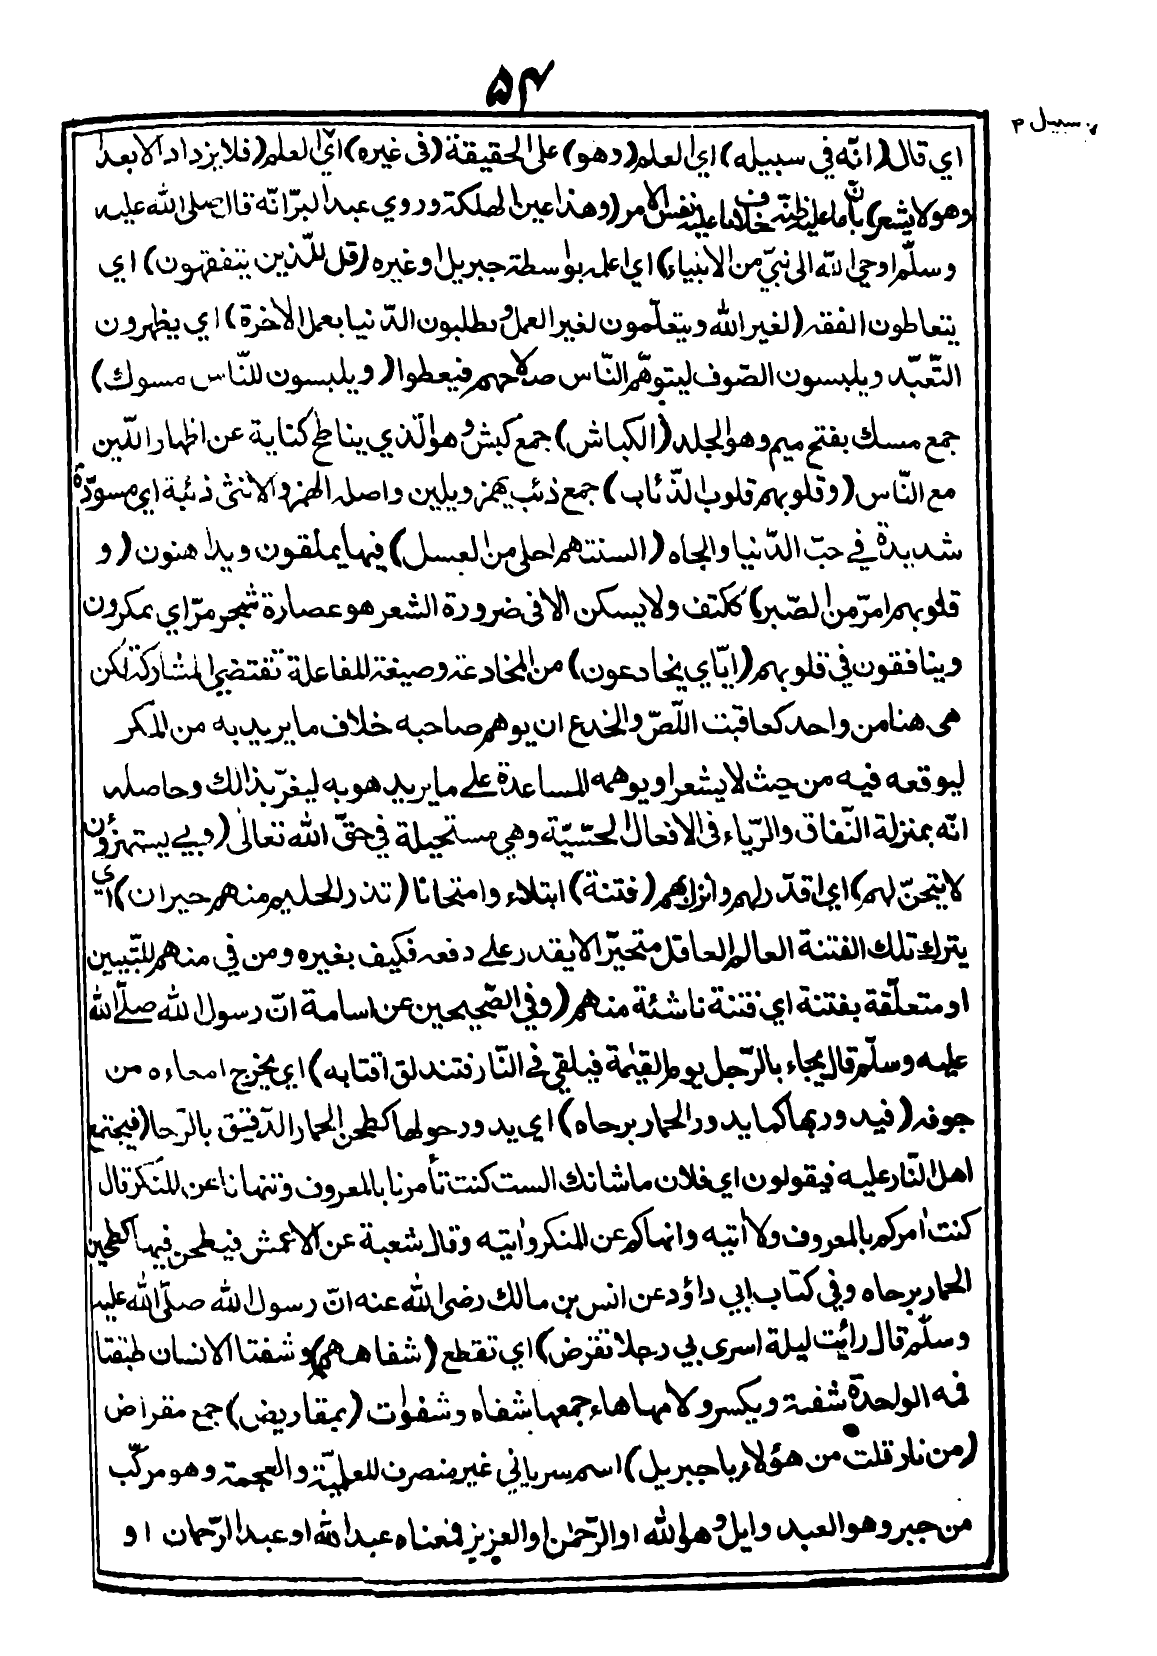 ۵۴
سبيل م
اي قال (انّه في سبيله) اي العلم (وهو) على الحقيقة (فى غيره) اي العلم (فلا يزداد الا بعدا
وهو لا يشعر) بأن ما عليه ظنّه خلاف ما عليه نفس الامر (وهذا عين الهلكة وروي عبد البرّ انّه قال صلى الله عليه
وسلّم اوحى الله الى نبيّ من الانبياء) اي اعلمه بواسطة جبريل اوغيره (قل للّذين يتفقهون) اي
يتعاطون الفقه (لغير الله ويتعلّمون لغير العمل ويطلبون الدّنيا بعمل الأخرة) اي يظهرون
التّعبّد ويلبسون الصّوف ليتوهّم النّاس صلاحهم فيعطوا (ويلبسون للنّاس مسوك)
جمع مسك بفتح ميم وهو الجلد (الكباش) جمع كبش وهو الّذي يناطح كناية عن اظهار اللّين
مع النّاس (وقلوبهم قلوب الذّئاب) جمع ذئب يهمز ويلين واصله الهمز والانثى ذئبة اي مسوّدة
شديدة في حبّ الدّنيا والجاه (السنتهم احلى من العسل) فيها يملقون ويداهنون (و
قلوبهم امرّ من الصّبر) ككتف ولا يسكن الا فى ضرورة الشعر هو عصارة شجر مرّ اي يمكرون
وينافقون في قلوبهم (ايّاي يخادعون) من المخادعة وصيغة المفاعلة تقتضي المشاركة لكن
هى هنا من واحد كعاقبت اللّصّ والخدع ان يوهم صاحبه خلاف ما يريد به من المكر
ليوقعه فيه من حيث لا يشعر او يوهمه المساعدة على ما يريد هو به ليغرّ بذالك وحاصله
انّه بمنزلة النّفاق والرّياء فى الافعال الحسّيّة وهي مستحيلة في حقّ الله تعالى (وبي يستهزؤن
لا يتحنّ لهم) اي اقدّر لهم وانزل بهم (فتنة) ابتلاء وامتحانا (تذر الحليم منهم حيران) اي
يترك تلك الفتنة العالم العاقل متحيّرا لا يقدر على دفعه فكيف بغيره ومن في منهم للتّبيين
او متعلّقة بفتنة اي فتنة ناشئة منهم (وفي الصّحيحين عن اسامة انّ رسول الله صلّى الله
عليه وسلّم قال يجاء بالرّجل يوم القيٰمة فيلقي في النّار فتندلق اقتابه) اي يخرج امعاءه من
جوفه (فيدور بها كما يدور الحمار برحاه) اي يدور حولها كطحن الحمار الدّقيق بالرّحا (فيجتمع
اهل النّار عليه فيقولون اي فلان ما شانك الست كنت تأمرنا بالمعروف وتنهانا عن المنكر قال
كنت امركم بالمعروف ولا اتيه وانهاكم عن المنكر واتيه وقال شعبة عن الاعمش فيطحن فيها كطحين
الحمار برحاه وفي كتاب ابي داؤد عن انس بن مالك رضى الله عنه انّ رسول الله صلّى الله عليه
وسلّم قال رائيت ليلة اسرى بي رجلا تقرض) اي تقطع (شفاههم) وشفتا الانسان طبقتا
فمه الواحدة شفة ويكسر ولامها هاء جمعها شفاه وشفوات (بمقاريض) جمع مقراض
(من نار قلت من هؤلاء يا جبريل) اسم سرياني غير منصرف للعلميّة والعجمة وهو مركّب
من جبر وهو العبد وايل وهو الله او الرّحمٰن او العزيز فمعناه عبد الله او عبد الرّحمان او